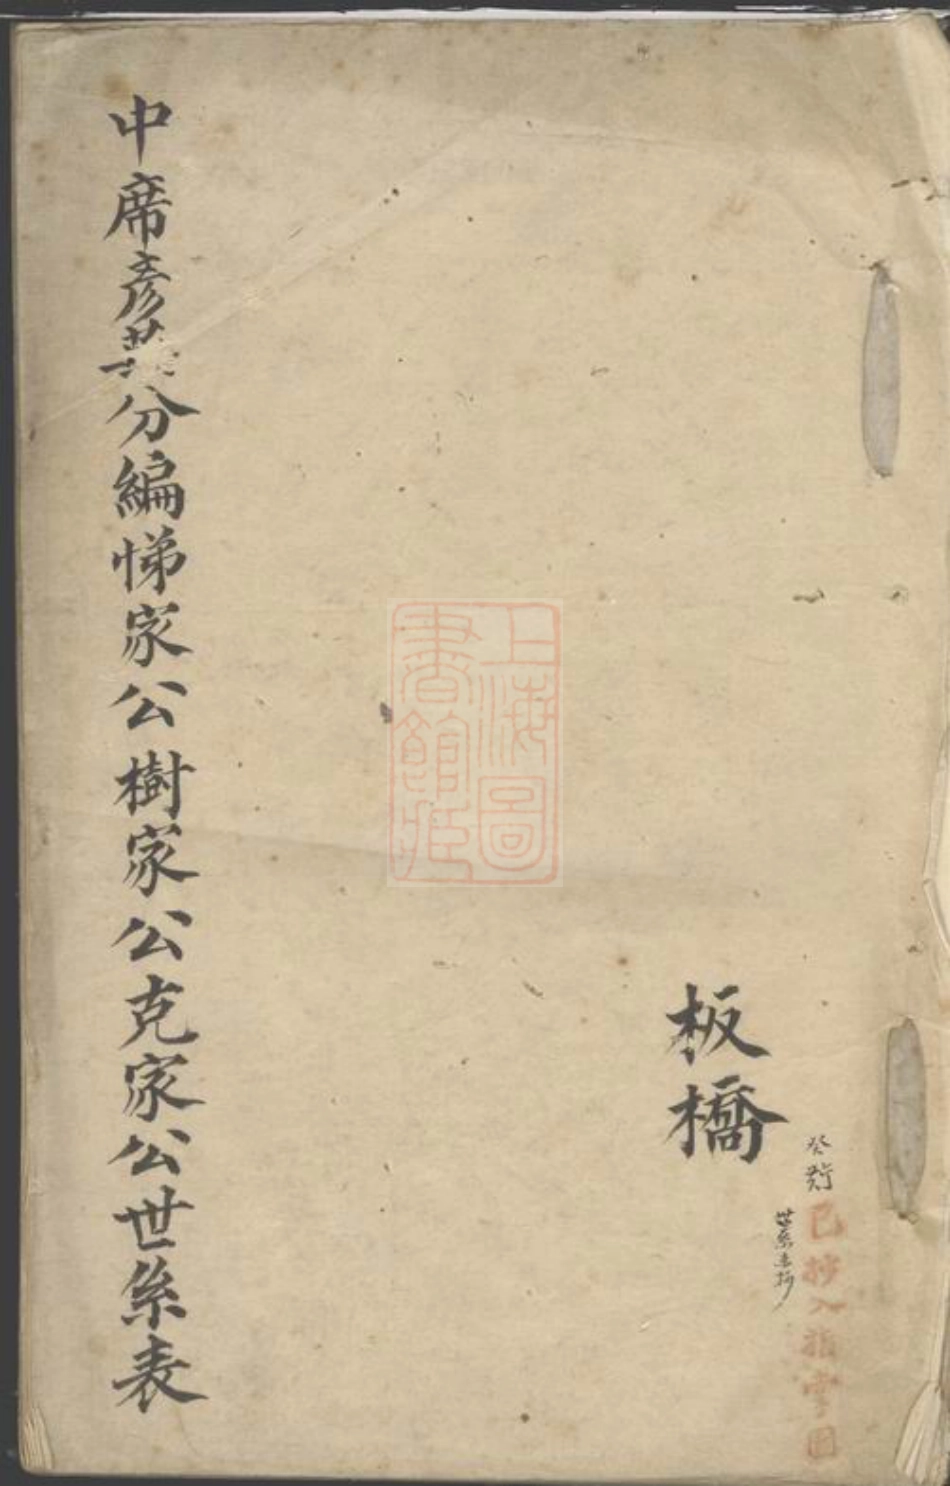 板橋
已抄入指掌图
世系未抄
上海圖
書館藏
中席彥英分編悌家公樹家公克家公世系表